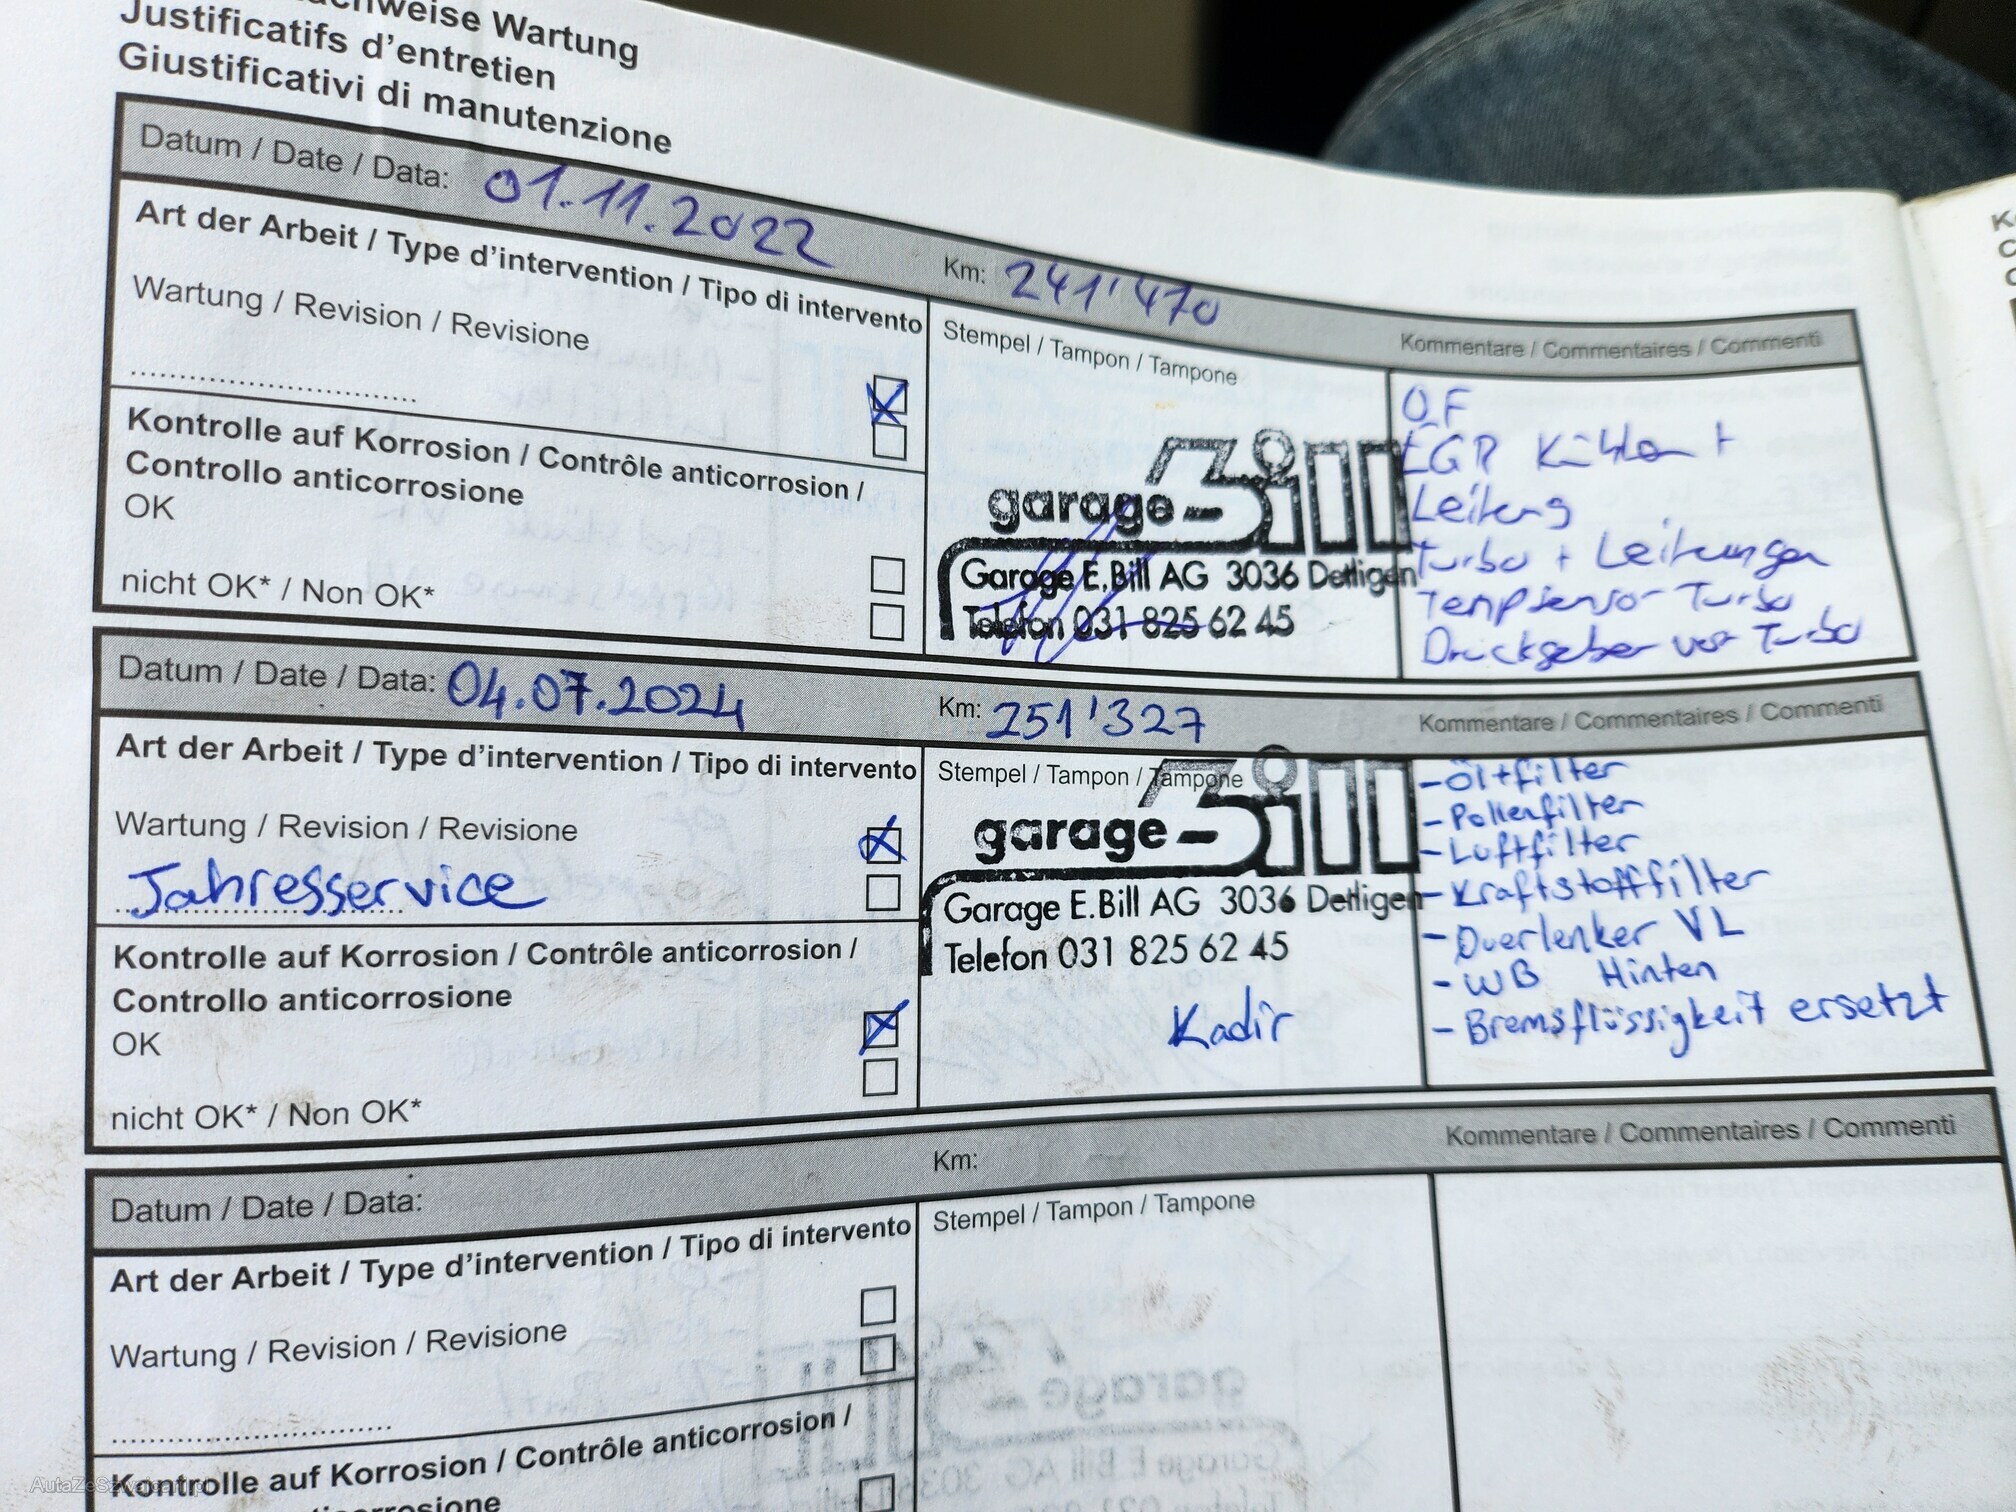 weise Wartung
Justificatifs d'entretien
Giustificativi di manutenzione
Datum / Date / Data: 01.11.2022
Km: 241'470
Kommentare / Commentaires / Commenti
Art der Arbeit / Type d'intervention / Tipo di intervento
Stempel / Tampon / Tampone
Wartung / Revision / Revisione
Kontrolle auf Korrosion / Contrôle anticorrosion /
Controllo anticorrosione
OK
nicht OK* / Non OK*
garage-Bill
Garage E.Bill AG 3036 Detligen
Telefon 031 825 62 45
ÖF
EGR Kühler +
Leitung
Turbo + Leitungen
Tempsensor Turbo
Druckgeber vor Turbo
Datum / Date / Data: 04.07.2024
Km: 251'327
Kommentare / Commentaires / Commenti
Art der Arbeit / Type d'intervention / Tipo di intervento
Stempel / Tampon / Tampone
Wartung / Revision / Revisione
Jahresservice
Kontrolle auf Korrosion / Contrôle anticorrosion /
Controllo anticorrosione
OK
nicht OK* / Non OK*
garage-Bill
Garage E.Bill AG 3036 Detligen
Telefon 031 825 62 45
Kadir
- Öl+filter
- Pollenfilter
- Luftfilter
- Kraftstofffilter
- Querlenker VL
- WB Hinten
- Bremsflüssigkeit ersetzt
Datum / Date / Data:
Km:
Kommentare / Commentaires / Commenti
Art der Arbeit / Type d'intervention / Tipo di intervento
Stempel / Tampon / Tampone
Wartung / Revision / Revisione
Kontrolle auf Korrosion / Contrôle anticorrosion /